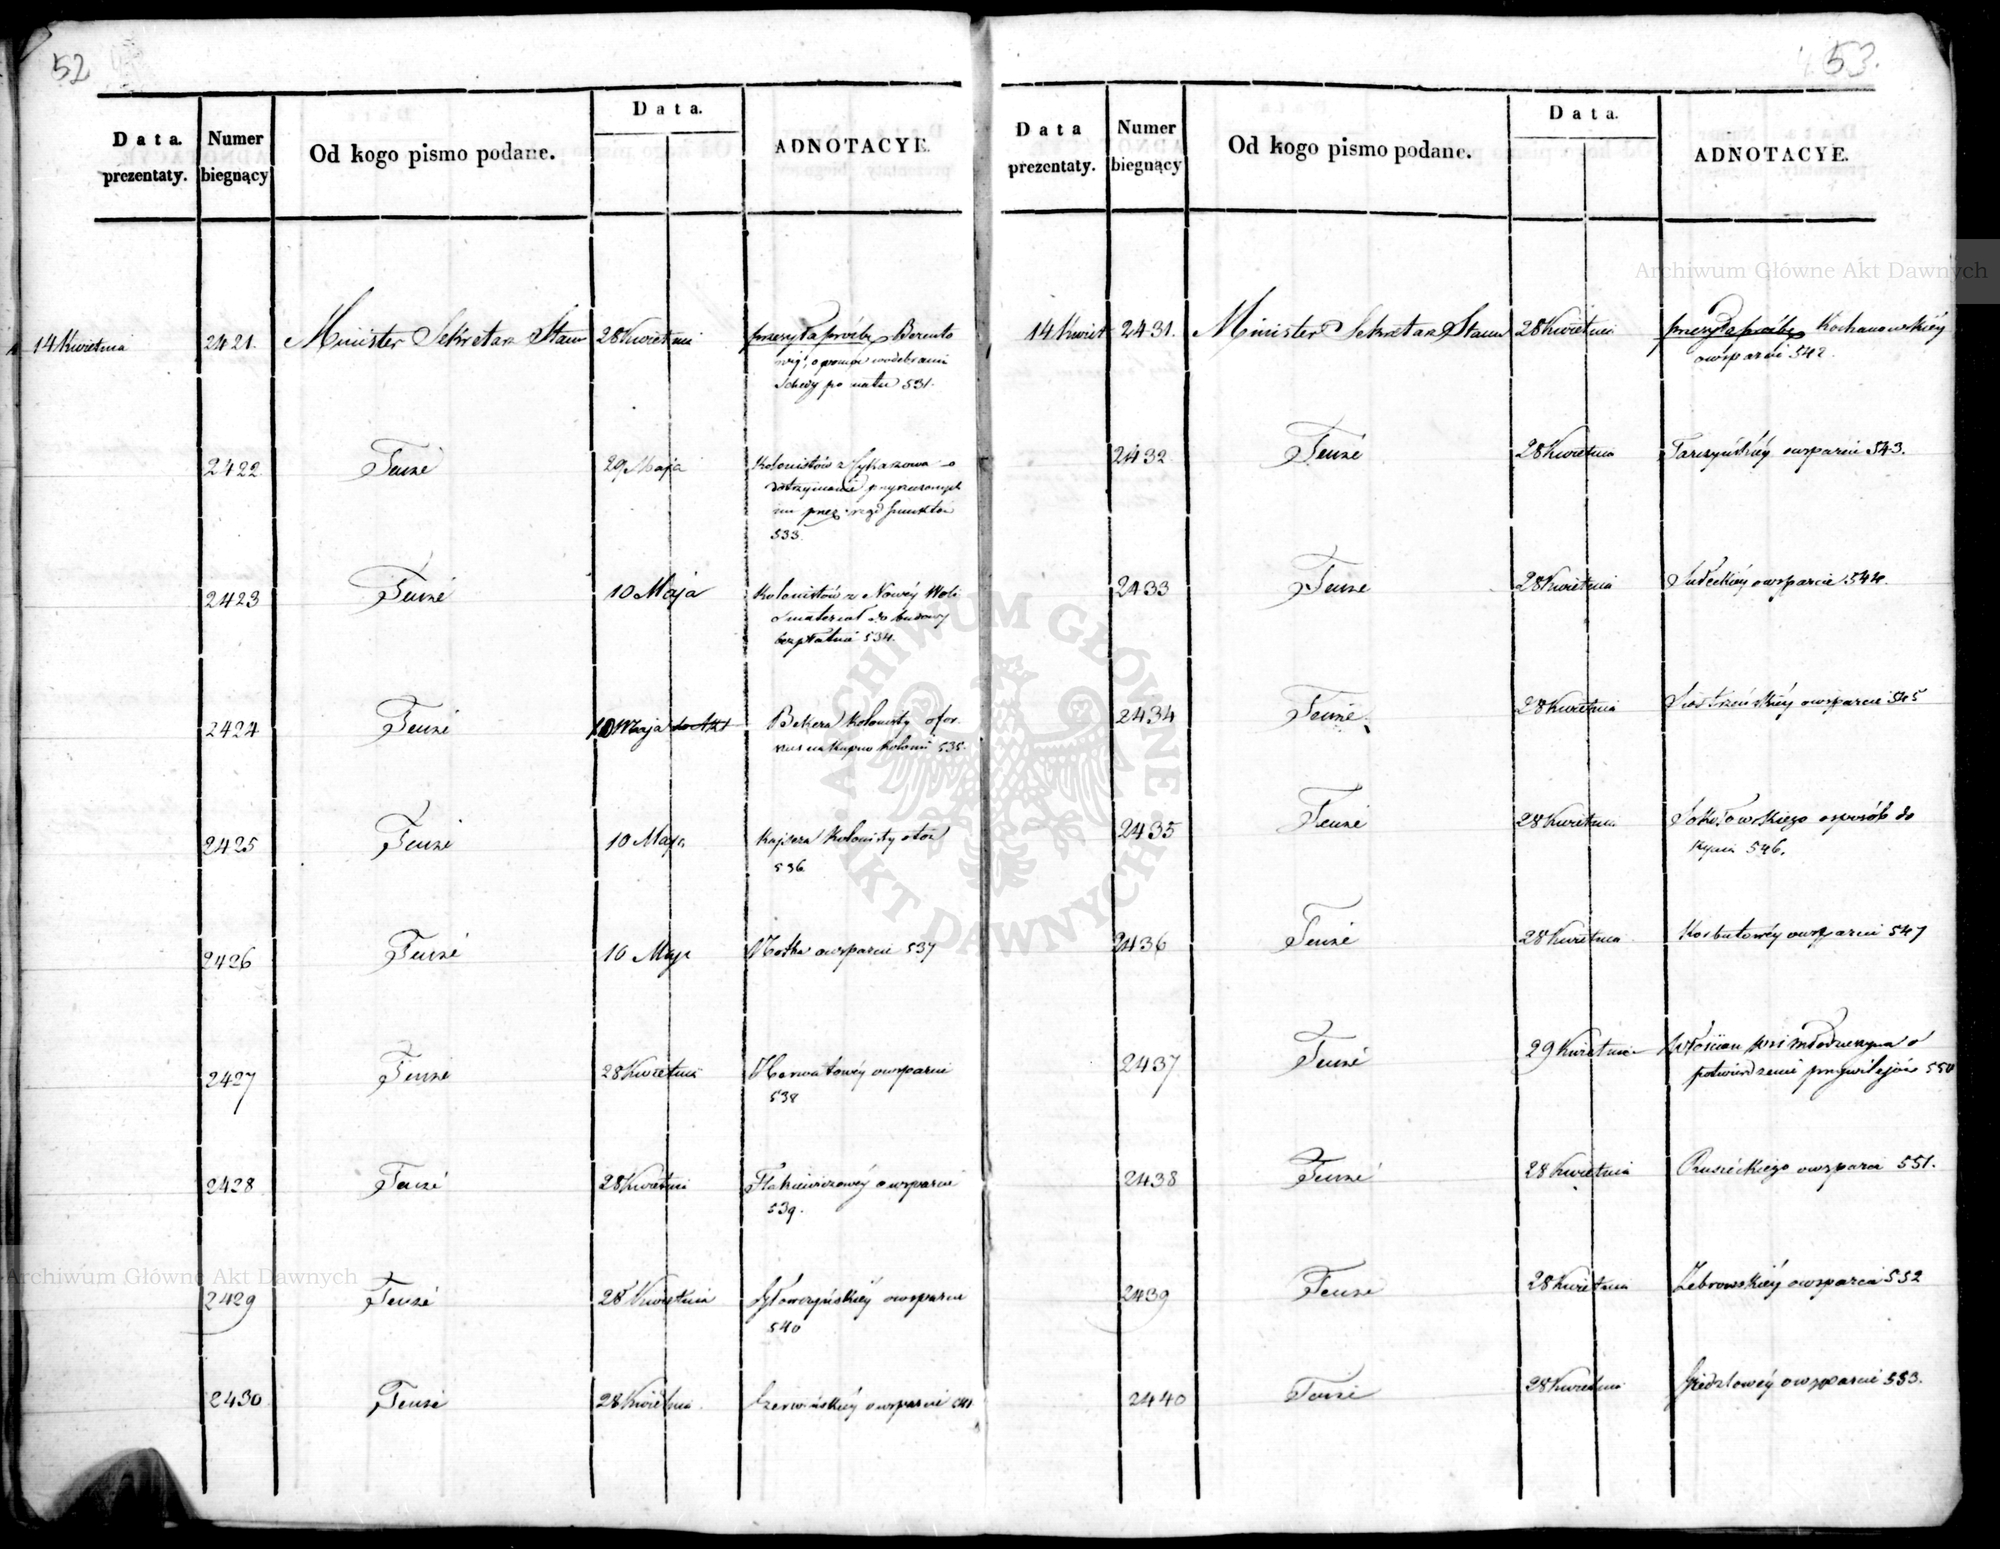 52
Data prezentaty. Numer biegnący Od kogo pismo podane. Data. ADNOTACYE.
14 Kwietnia 2421. Minister Sekretarz Stanu 28 Kwietnia przesyła prośby Berento
wdebraniu
schedy po matce 531.
2422 Tenże 29 Maja Kolonistów z
dotrzymanie przyrzeczonych
im przez rząd punktów
533.
2423 Tenże 10 Maja Kolonistów z Nowéy Woli
o materiał do budowy
bezpłatnie 534.
2424 Tenże 10 Maja do Akt Bekera Kolonisty o for
na kupno kolonii 535.
2425 Tenże 10 Maja Kajzera Kolonisty o toż
536
2426 Tenże 10 Maja owsparcie 537
2427 Tenże 28 Kwietnia Horwatowéy owsparcie
538
2428 Tenże 28 Kwietnia owsparcie
539.
2429 Tenże 28 Kwietnia owsparcie
540
2430 Tenże 28 Kwietnia Czerwińskiéy owsparcie 541
53.
Data prezentaty. Numer biegnący Od kogo pismo podane. Data. ADNOTACYE.
14 Kwiet 2431. Minister Sekretarz Stanu 28 Kwietnia przesyła prośby Kochanowskiéy
owsparcie 542.
2432 Tenże 28 Kwietnia Tarczyńskiéy owsparcie 543.
2433 Tenże 28 Kwietnia owsparcie 544.
2434 Tenże 28 Kwietnia owsparcie 545
2435 Tenże 28 Kwietnia Sokołowskiego o sposób do
życia 546.
2436 Tenże 28 Kwietnia Korbutowéy owsparcie 547
2437 Tenże 29 Kwietnia Włościan wsi Młodzieszyna o
potwierdzenie przywilejów 550
2438 Tenże 28 Kwietnia Ruszéckiego owsparcie 551.
2439 Tenże 28 Kwietnia Żebrowskiéy owsparcie 552
2440 Tenże 28 Kwietnia owsparcie 553.
Archiwum Główne Akt Dawnych
ARCHIWUM GŁÓWNE AKT DAWNYCH
Archiwum Główne Akt Dawnych